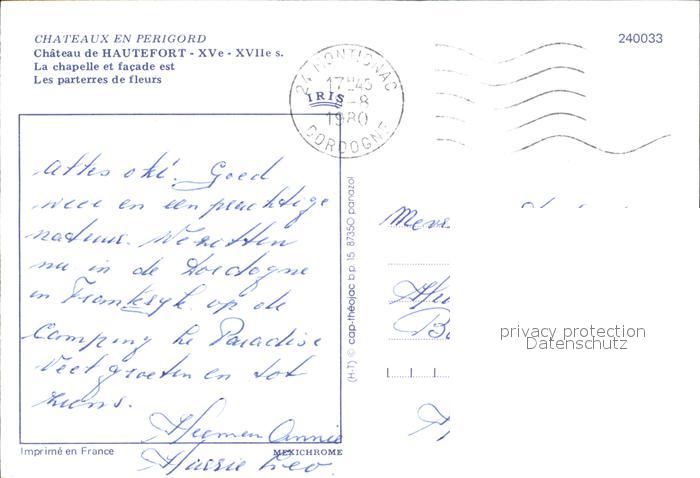 CHATEAUX EN PERIGORD
Château de HAUTEFORT - XVe - XVIIe s.
La chapelle et façade est
Les parterres de fleurs
240033
24 MONTIGNAC
17H45
-8
1980
DORDOGNE
IRIS
Alles oké. Goed
weer en een prachtige
natuur. We zitten
nu in de Dordogne
in Frankryk op de
Camping le Paradise
Veel groeten en tot
ziens.
Herman Annie
Leo
(H-T) © cap-théojac b.p. 15 87350 panazol
Mevr
privacy protection
Datenschutz
Imprimé en France
MEXICHROME